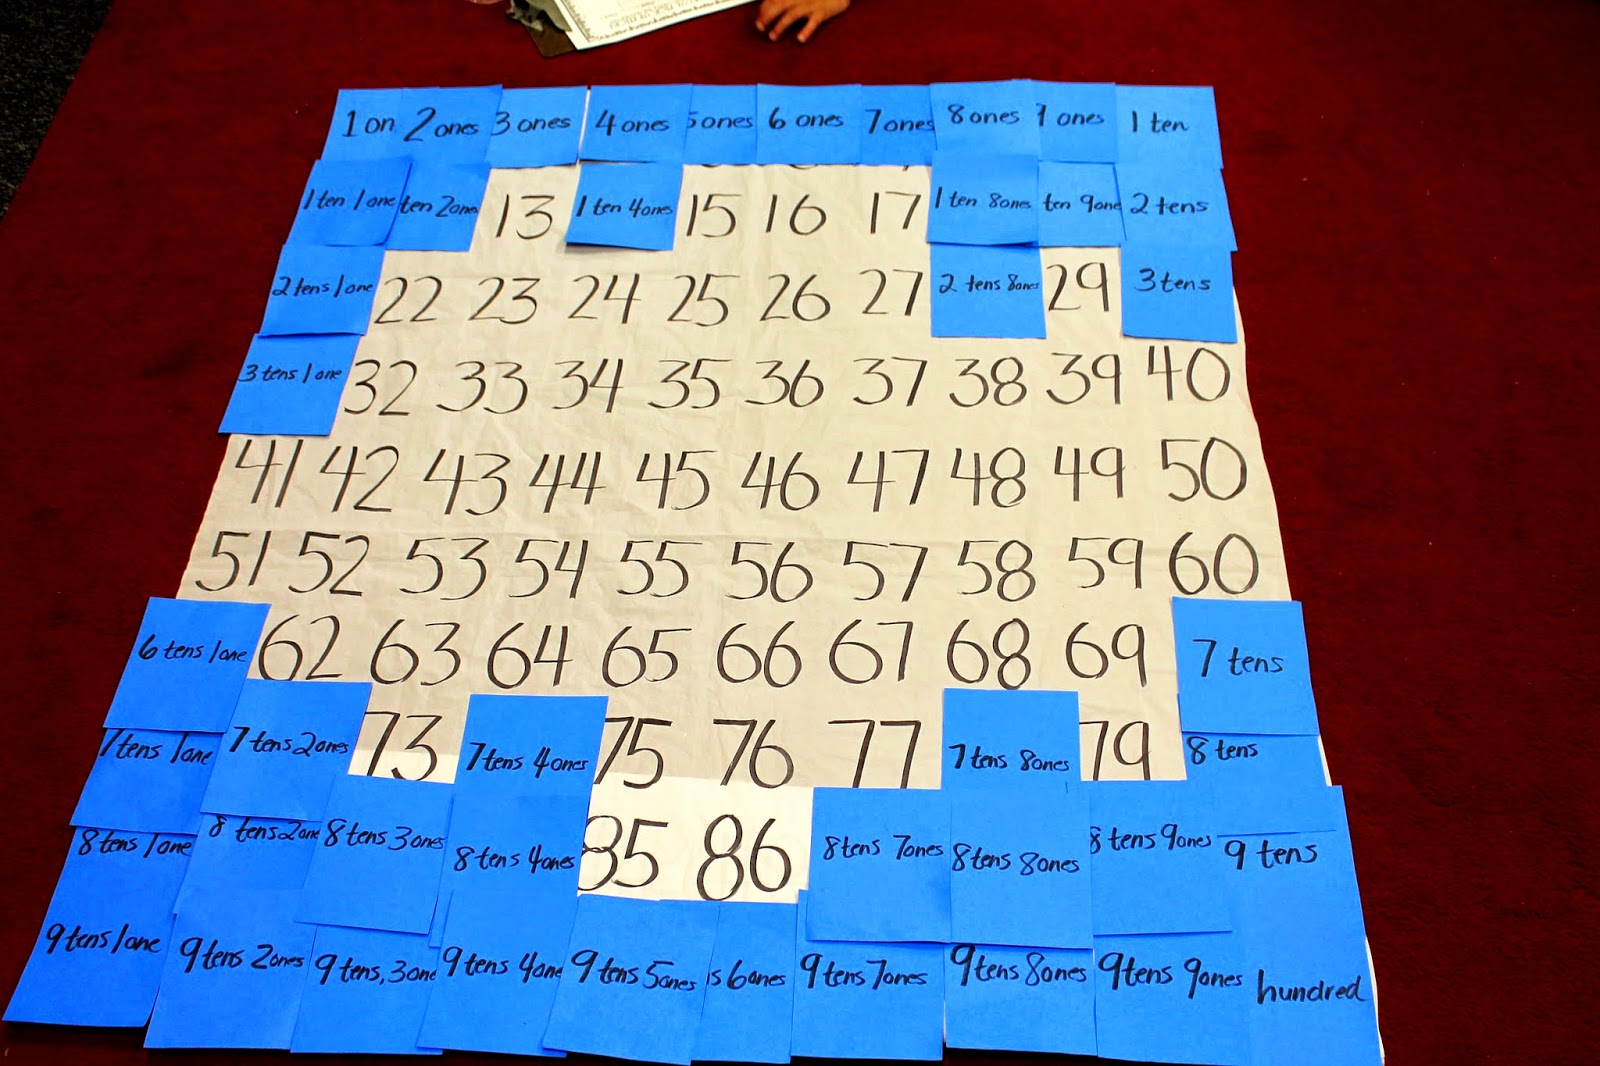 1 on 2 ones 3 ones 4 ones 5 ones 6 ones 7 ones 8 ones 9 ones 1 ten
1 ten 1 one ten 2 ones 13 1 ten 4 ones 15 16 17 1 ten 8 ones ten 9 one 2 tens
2 tens 1 one 22 23 24 25 26 27 2 tens 8 ones 29 3 tens
3 tens 1 one 32 33 34 35 36 37 38 39 40
41 42 43 44 45 46 47 48 49 50
51 52 53 54 55 56 57 58 59 60
6 tens 1 one 62 63 64 65 66 67 68 69 7 tens
7 tens 1 one 7 tens 2 ones 73 7 tens 4 ones 75 76 77 7 tens 8 ones 79 8 tens
8 tens 1 one 8 tens 2 one 8 tens 3 ones 8 tens 4 ones 85 86 8 tens 7 ones 8 tens 8 ones 8 tens 9 ones 9 tens
9 tens 1 one 9 tens 2 ones 9 tens, 3 one 9 tens 4 one 9 tens 5 ones s 6 ones 9 tens 7 ones 9 tens 8 ones 9 tens 9 ones hundred